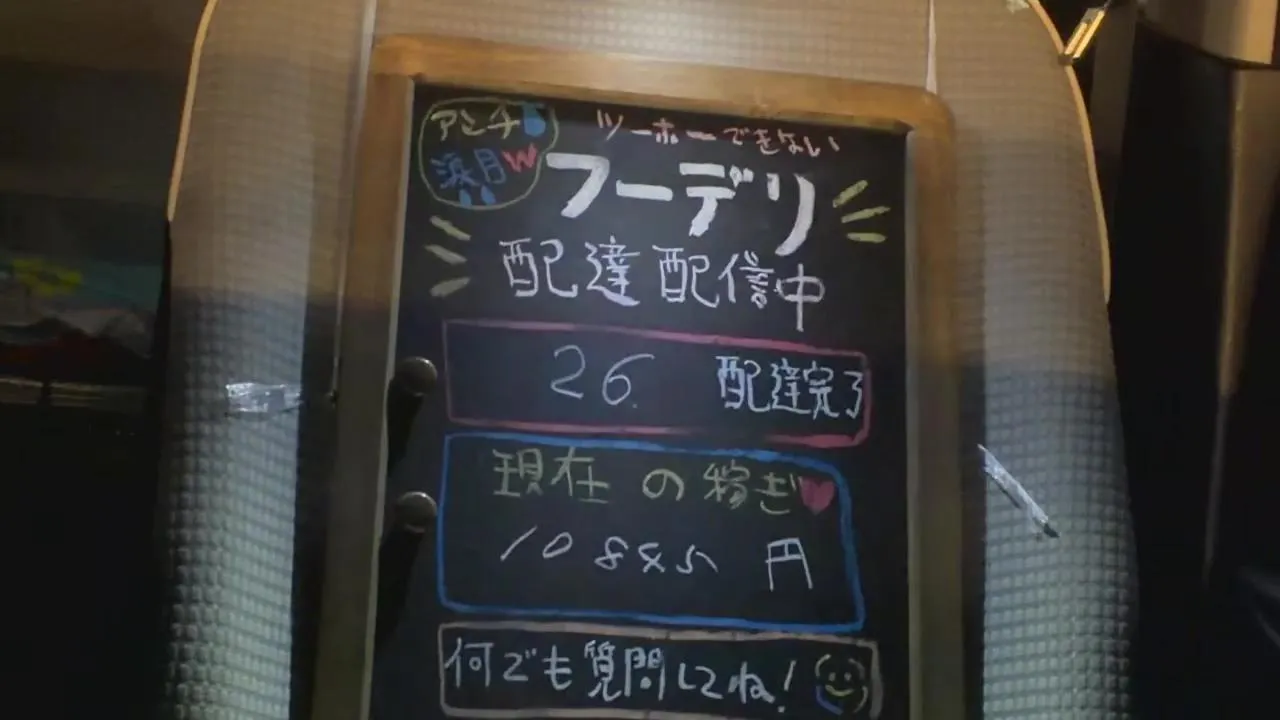 アンチ
涙目w
ツーホーできない
フーデリ
配達配信中
26 配達完了
現在の稼ぎ
円
何でも質問してね!